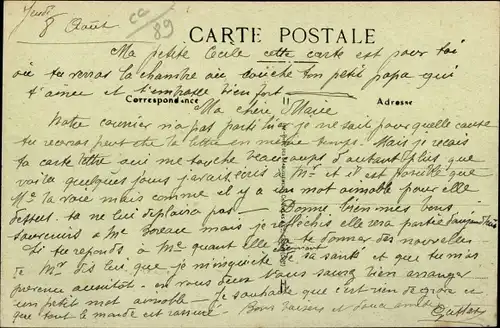 Jeudi
8 Août
CARTE POSTALE
Ma petite Cécile cette carte est pour toi
où tu verras la chambre où couche ton petit papa qui
t'aime et t'embrasse bien fort
Correspondance Adresse
Ma chère Marie
Notre courrier n'a pas parti hier je ne sait pourquoi cette carte
tu recevras peut être la lettre en même temps. Mais je reçois
ta carte lettre qui me touche beaucoup d'autant plus que
voilà quelques jours j'avais à Mr et il est possible que
Me la voie mais comme il y a un mot aimable pour elle
ta ne lui déplaira pas — Donne bien mes bons
souvenirs à me mais je réfléchis elle sera partie
Si tu réponds à Me quant elle donner des nouvelles
de Mr dis lui que je m'inquiète de sa santé et que tu m'as
prévenu aussitôt vous deux vous saurez bien arranger
un petit mot aimable — Je souhaite que c'est rien de grave et
que tout le monde est rassuré — Bons baisers et